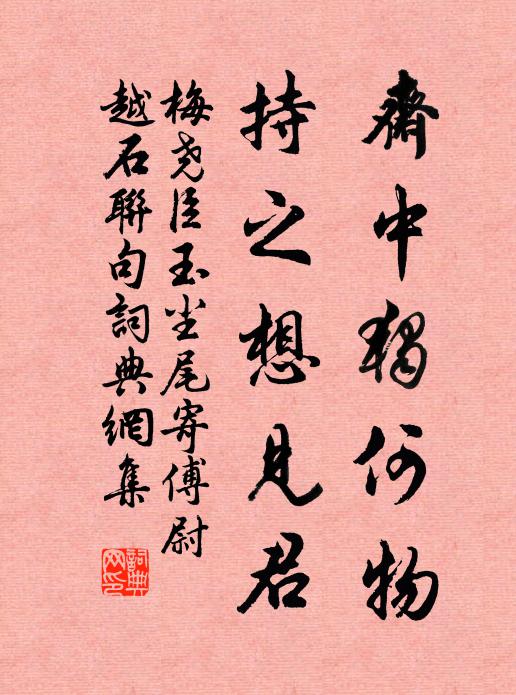 齋中獨何物
持之想見君
梅尧臣玉尘尾寄傅尉
越石聯句詞典網集
詞典网印